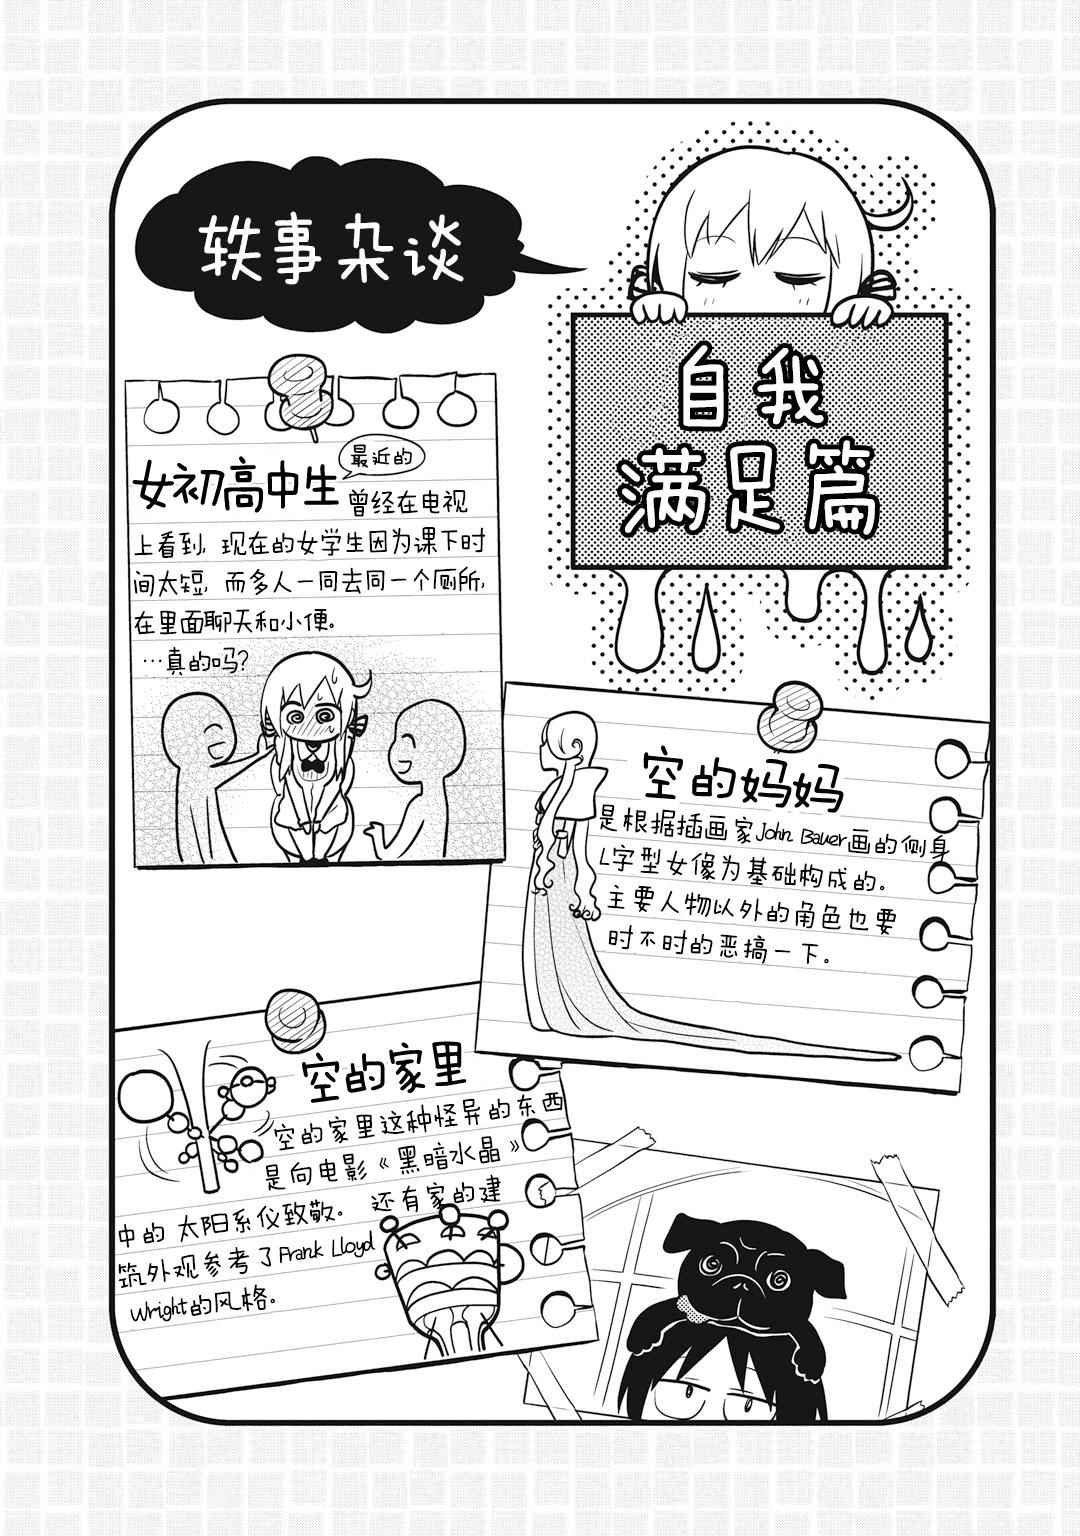 轶事杂谈
自我
满足篇
最近的
女初高中生 曾经在电视
上看到, 现在的女学生因为课下时
间太短, 而多人一同去同一个厕所,
在里面聊天和小便。
…真的吗?
空的妈妈
是根据插画家John Bauer画的侧身
L字型女像为基础构成的。
主要人物以外的角色也要
时不时的恶搞一下。
空的家里
空的家里这种怪异的东西
是向电影《黑暗水晶》
中的 太阳系仪致敬。 还有家的建
筑外观参考了Frank Lloyd
Wright的风格。